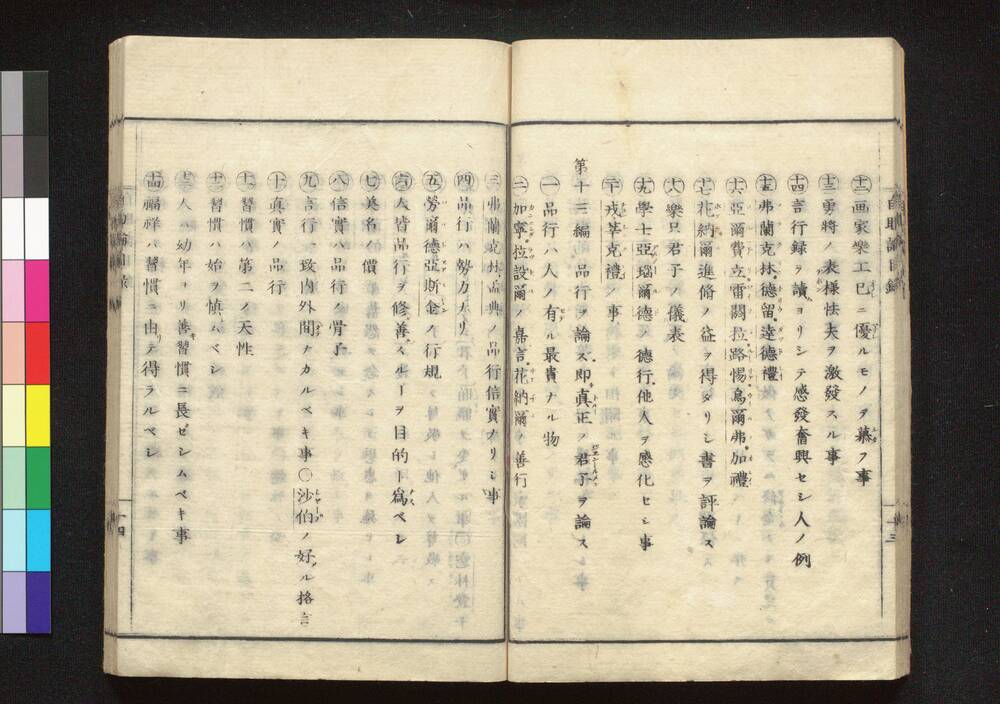 ㊉二画家樂工巳ニ優ルモノヲ慕フ事
㊉三勇將ノ表様怯夫ヲ激發スル事
十四言行録ヲ讀ヨリシテ感發奮興セシ人ノ例
十五弗蘭克林德留達德禮
十六亞爾費立雷閣拉路惕烏爾弗加禮
十七花納爾進脩ノ益ヲ得タリシ書ヲ評論ス
十八樂只君子ノ儀表
十九學士亞瑙爾德ノ德行他人ヲ感化セシ事
二十戎莘克禮ノ事
第十三編 品行ヲ論ス即真正ノ君子ヲ論ス
一品行ハ人ノ有ル最貴ナル物
二加寧拉設爾ノ嘉言花納爾ノ善行
三弗蘭克林孟典ノ品行信實ナリシ事
四品行ハ勢力ナリ
五勞爾德亞斯金ノ行規
六人皆品行ヲ修善スルヿヲ目的ト為ベシ
七美名ノ價
八信實ハ品行ノ骨子
九言行一致内外間ナカルベキ事○沙伯ノ好メル格言
十真實ノ品行
十一習慣ハ第二ノ天性
十二習慣ハ始ヲ慎ムベシ
十三人ハ幼年ヨリ善習慣ニ長ゼシムベキ事
十四福祥ハ習慣ニ由テ得ラルベシ
十四